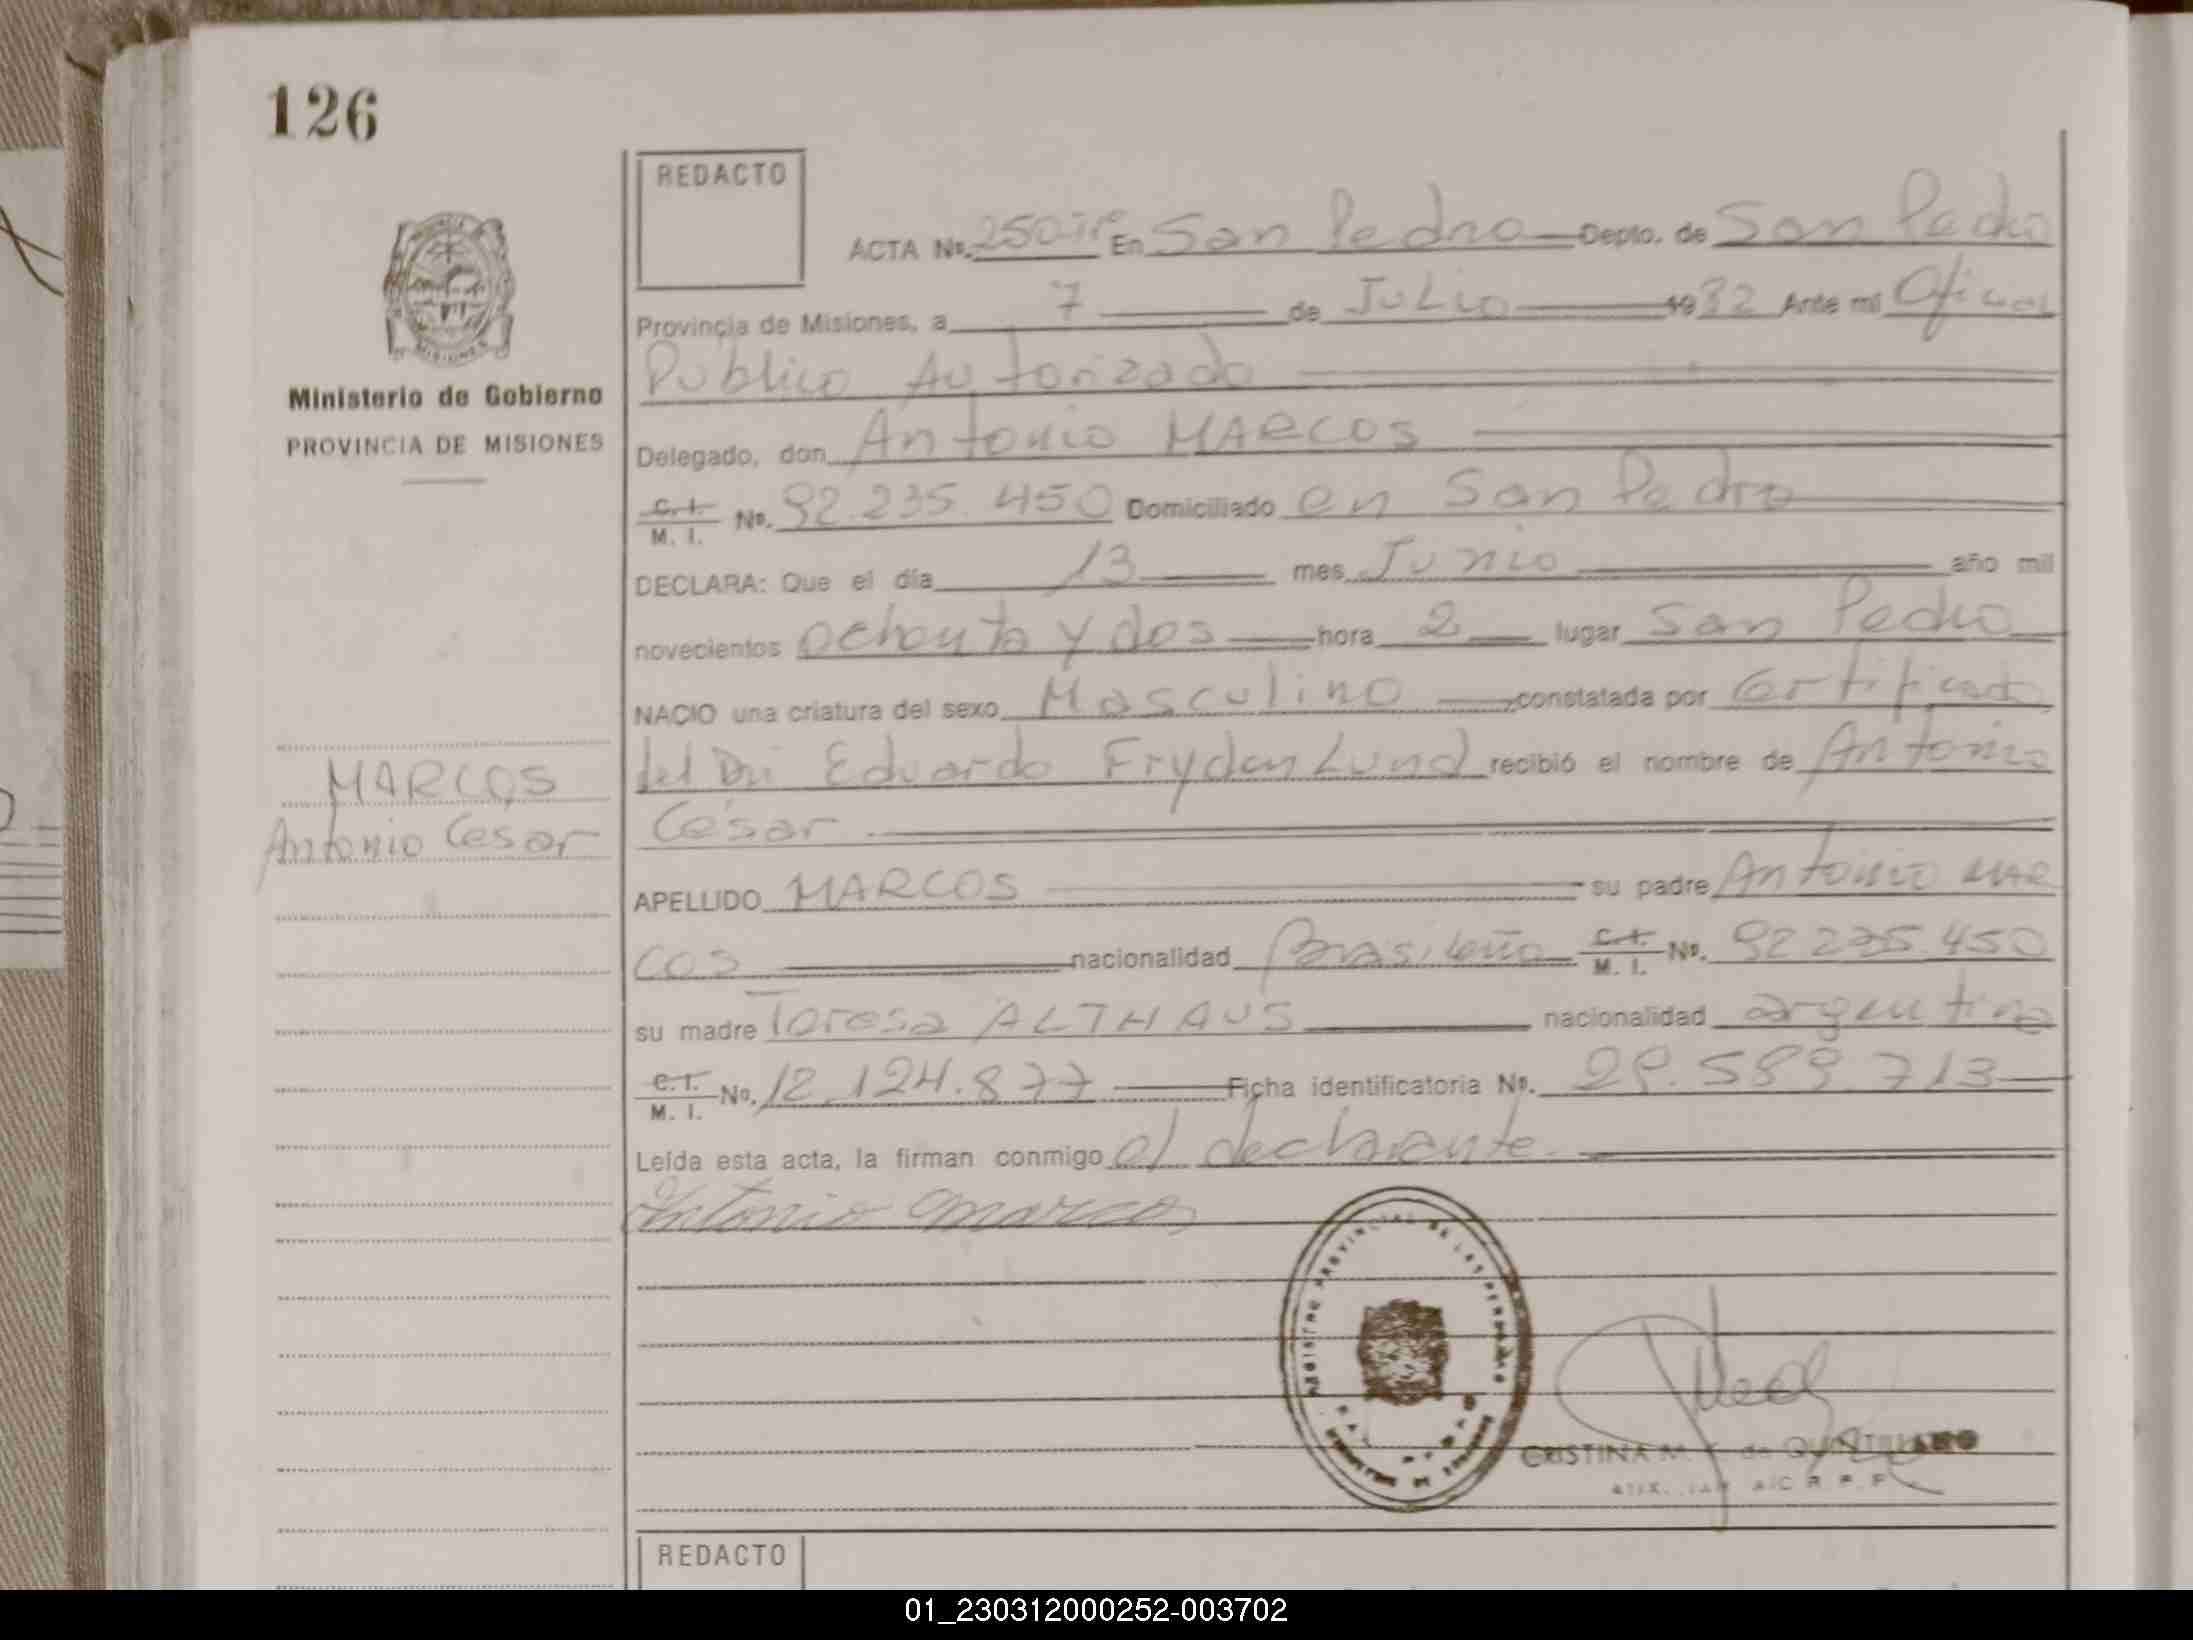 126
REDACTO
ACTA No. 250 En San Pedro Depto. de San Pedro
Provincia de Misiones, a 7 de Julio 1982 Ante mi Oficial
Publico Autorizado
Ministerio de Gobierno
PROVINCIA DE MISIONES
Delegado, don Antonio MARCOS
C. I. M. I. No. 92.235.450 Domiciliado en San Pedro
DECLARA: Que el día 13 mes Junio año mil
novecientos ochenta y dos hora 2 lugar San Pedro
NACIO una criatura del sexo Masculino constatada por Certificado
del Dr. Eduardo FrydenLund recibió el nombre de Antonio
César
MARCOS
Antonio Cesar
APELLIDO MARCOS su padre Antonio MAR
COS nacionalidad Brasileña C. I. M. I. No. 92 235.450
su madre Teresa ALTHAUS nacionalidad argentina
C. I. M. I. No. 12.124.877 Ficha identificatoria No. 29.589 713
Leída esta acta, la firman conmigo el declarante.
Antonio Marcos
REGISTRO PROVINCIAL DE LAS PERSONAS
CRISTINA M. de
REDACTO
01_230312000252-003702